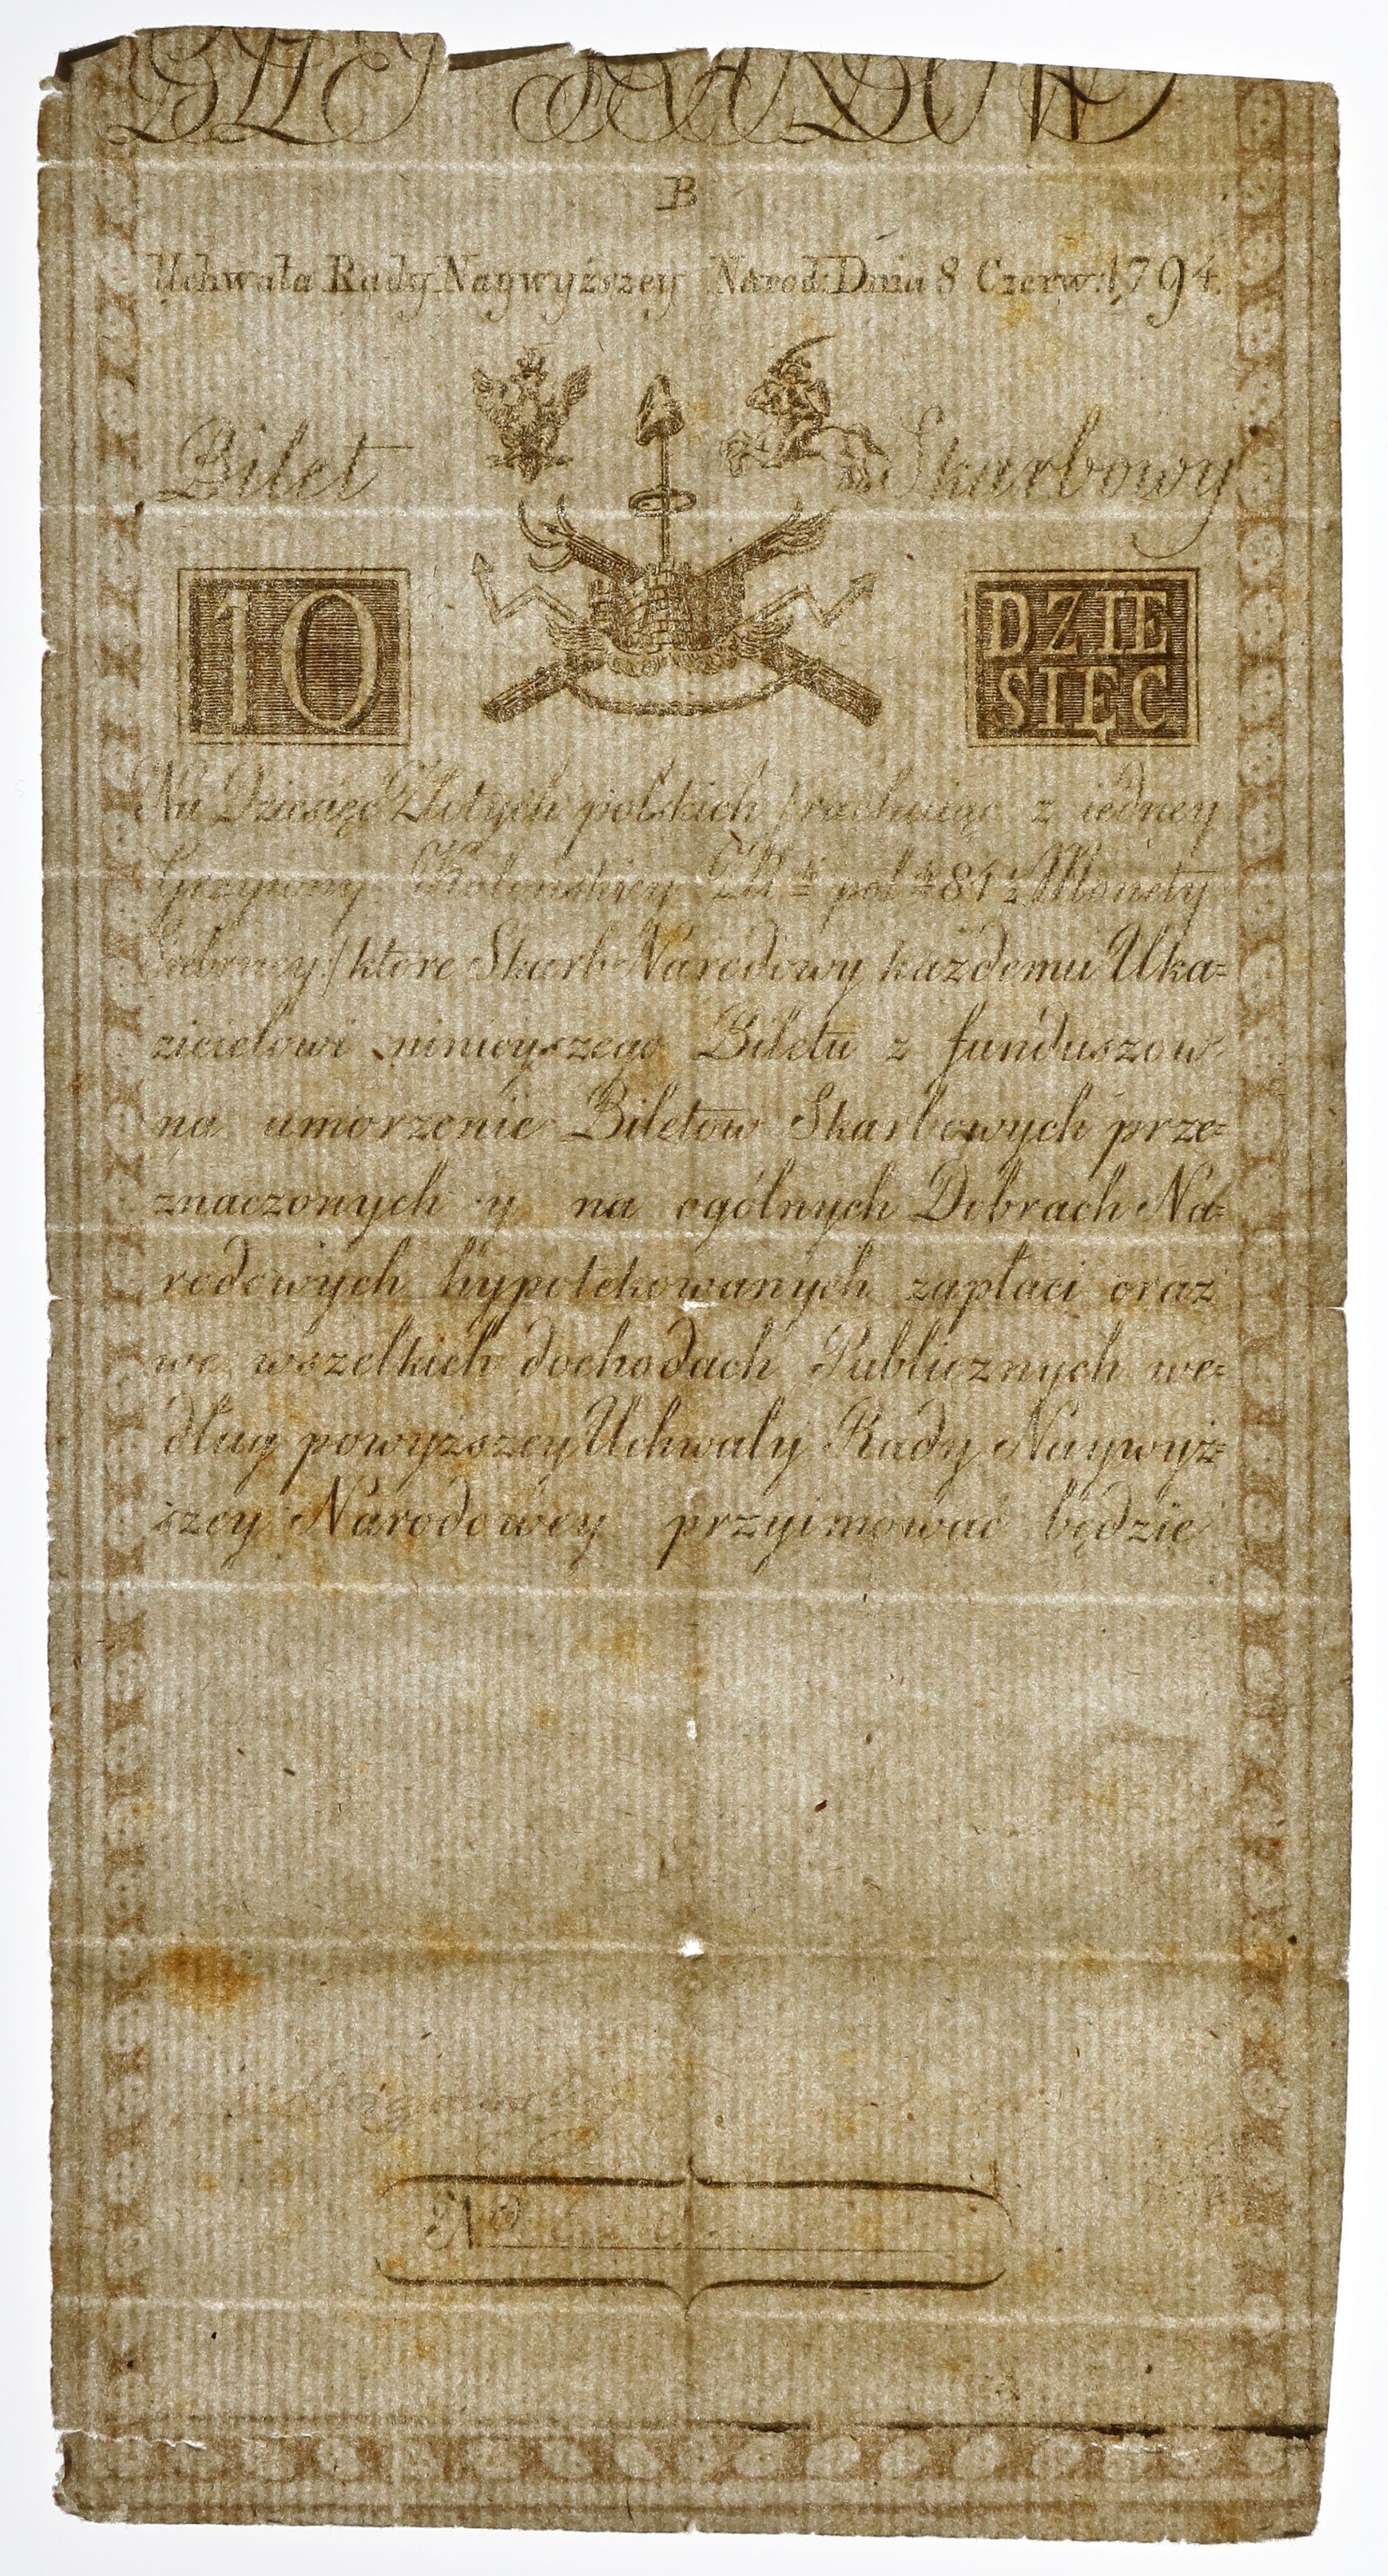 B
Uchwała Rady Naywyższey Narod: Dnia 8 Czerw: 1794.
Bilet Skarbowy
10
DZIE
SIĘC
Na Dziesięć Złotych polskich /rachuiąc z iedney
Grzywny Kolonskiey Zł: pol: 84½ Monety
Srebrney/ ktore Skarb Narodowy każdemu Uka=
zicielowi ninieyszego Biletu z funduszow
na umorzenie Biletow Skarbowych prze=
znaczonych y na ogólnych Dobrach Na=
rodowych hypotekowanych zapłaci oraz
we wszelkich dochodach Publicznych we=
dług powyższey Uchwały Rady Naywyż=
szey Narodowey przyimować będzie
N.ro